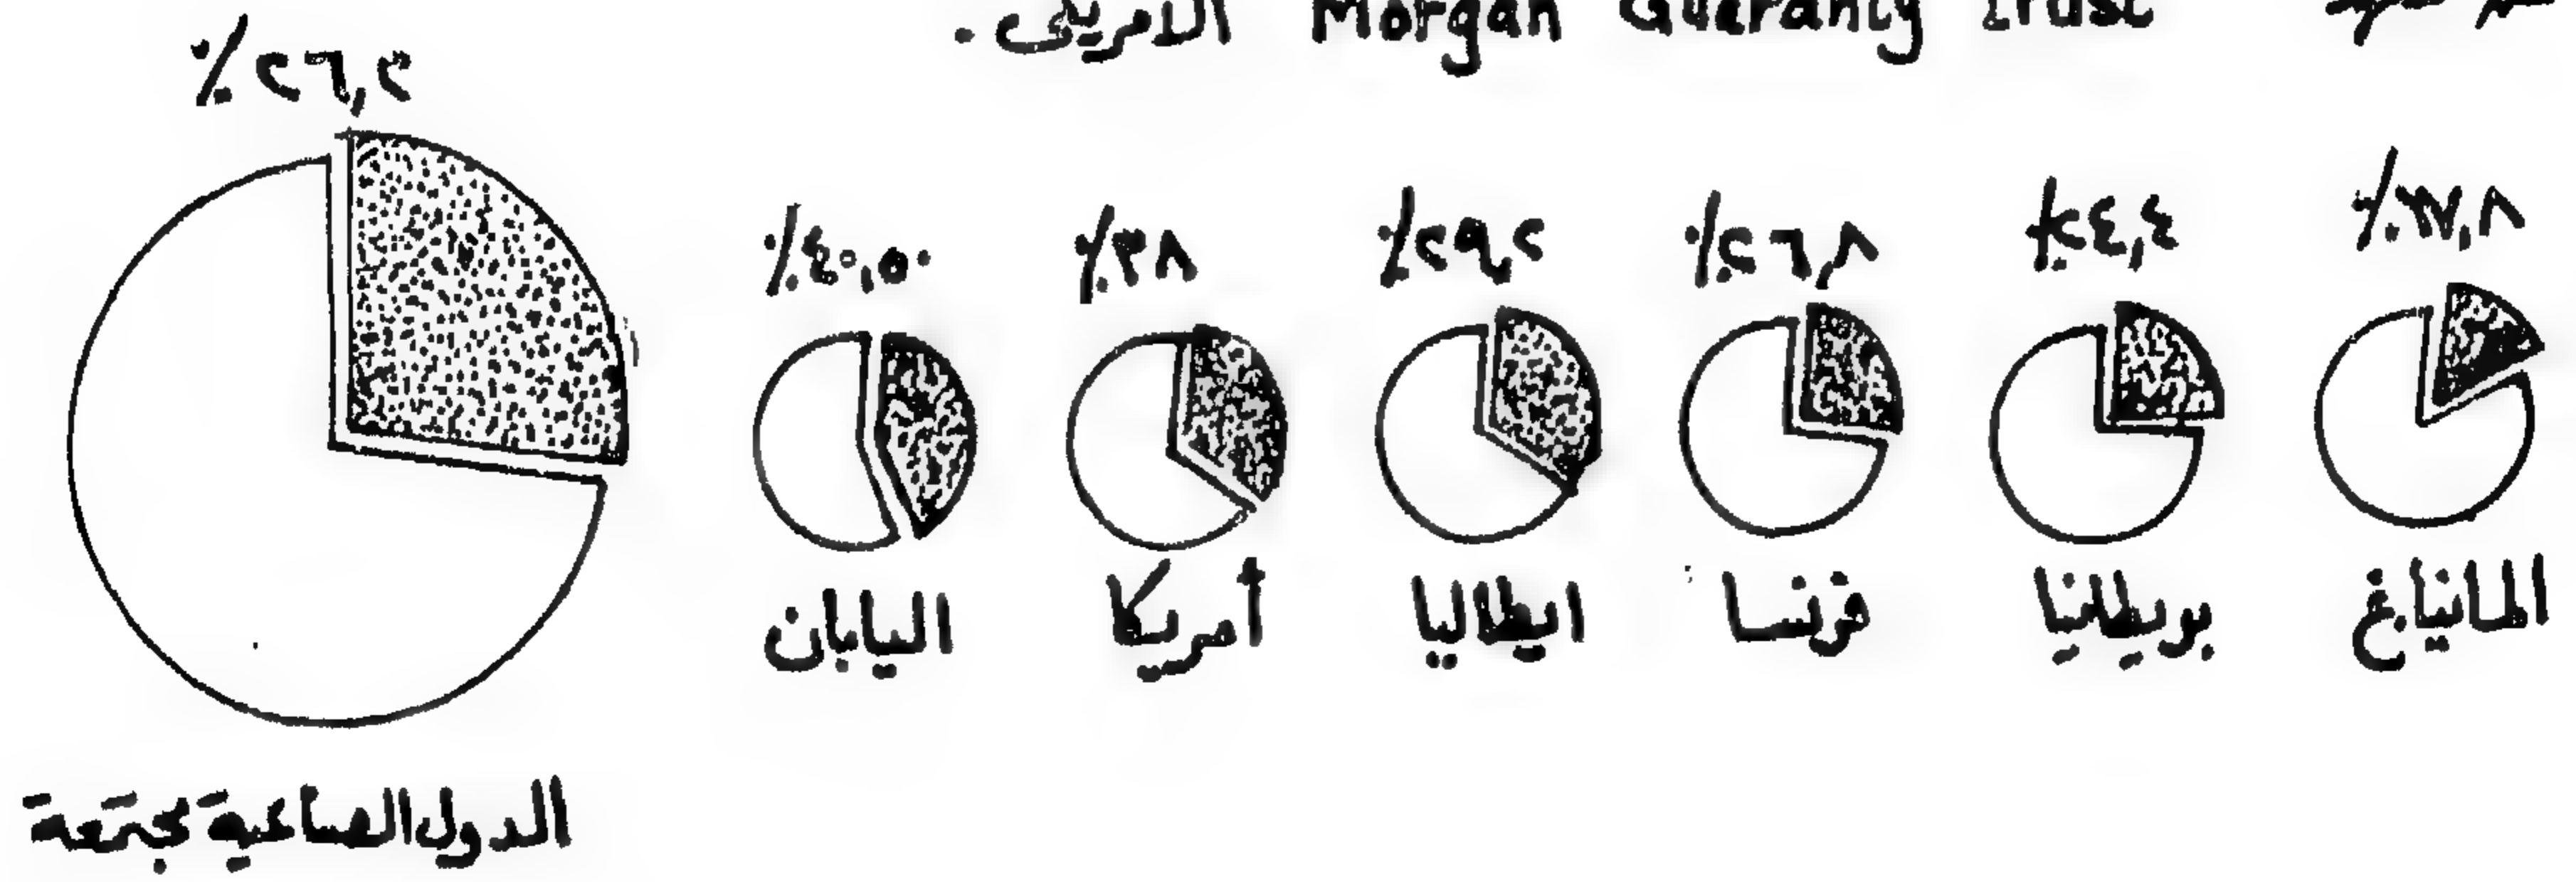 Morgan Guaranty Trust الامريكى .
٢٦,٢٪
٢٤,٤٪ ٢٦,٨٪ ٢٩,٢٪ ٣٨٪ ٤٠,٥٠٪
المانيا غ بريطانيا فرنسا ايطاليا أمريكا اليابان
الدول الصناعية مجتمعة